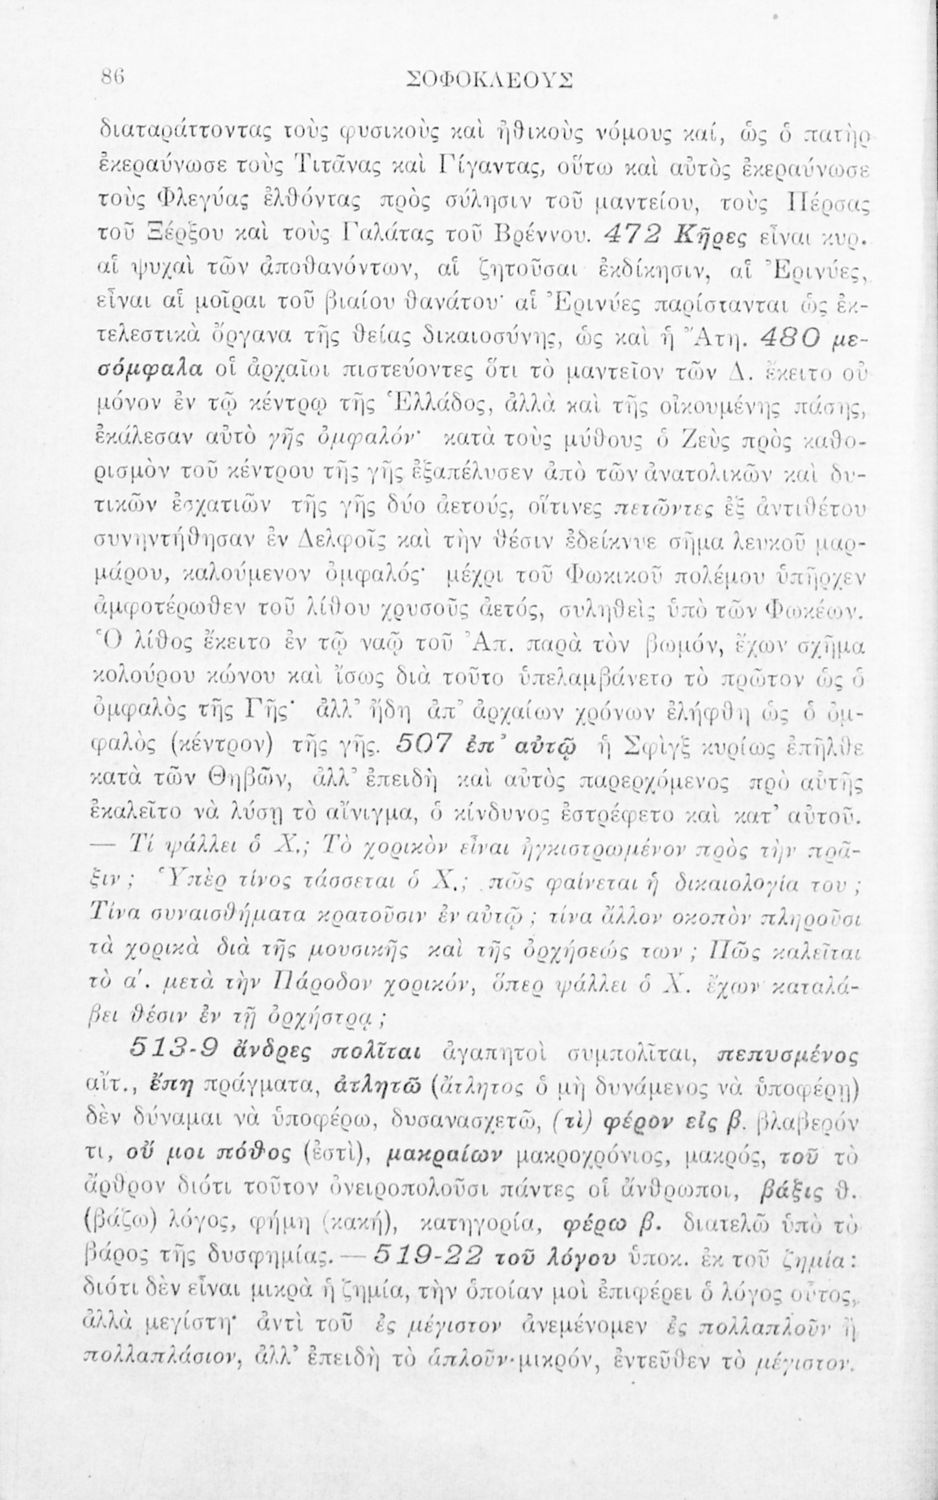 86
ΣΟΦΟΚΛΕΟΥΣ
διαταράττοντας τοὺς φυσικοὺς καὶ ἠθικοὺς νόμους καί, ὡς ὁ πατὴρ
ἐκεραύνωσε τοὺς Τιτᾶνας καὶ Γίγαντας, οὕτω καὶ αὐτὸς ἐκεραύνωσε
τοὺς Φλεγύας ἐλθόντας πρὸς σύλησιν τοῦ μαντείου, τοὺς Πέρσας
τοῦ Ξέρξου καὶ τοὺς Γαλάτας τοῦ Βρέννου. 472 Κῆρες εἶναι κυρ.
αἱ ψυχαὶ τῶν ἀποθανόντων, αἱ ζητοῦσαι ἐκδίκησιν, αἱ Ἐρινύες,
εἶναι αἱ μοῖραι τοῦ βιαίου θανάτου· αἱ Ἐρινύες παρίστανται ὡς ἐκ-
τελεστικὰ ὄργανα τῆς θείας δικαιοσύνης, ὡς καὶ ἡ Ἄτη. 480 με-
σόμφαλα οἱ ἀρχαῖοι πιστεύοντες ὅτι τὸ μαντεῖον τῶν Δ. ἔκειτο οὐ
μόνον ἐν τῷ κέντρῳ τῆς Ἑλλάδος, ἀλλὰ καὶ τῆς οἰκουμένης πάσης,
ἐκάλεσαν αὐτὸ γῆς ὀμφαλόν· κατὰ τοὺς μύθους ὁ Ζεὺς πρὸς καθο-
ρισμὸν τοῦ κέντρου τῆς γῆς ἐξαπέλυσεν ἀπὸ τῶν ἀνατολικῶν καὶ δυ-
τικῶν ἐσχατιῶν τῆς γῆς δύο ἀετούς, οἵτινες πετῶντες ἐξ ἀντιθέτου
συνηντήθησαν ἐν Δελφοῖς καὶ τὴν θέσιν ἐδείκνυε σῆμα λευκοῦ μαρ-
μάρου, καλούμενον ὀμφαλός· μέχρι τοῦ Φωκικοῦ πολέμου ὑπῆρχεν
ἀμφοτέρωθεν τοῦ λίθου χρυσοῦς ἀετός, συληθεὶς ὑπὸ τῶν Φωκέων.
Ὁ λίθος ἔκειτο ἐν τῷ ναῷ τοῦ Ἀπ. παρὰ τὸν βωμόν, ἔχων σχῆμα
κολούρου κώνου καὶ ἴσως διὰ τοῦτο ὑπελαμβάνετο τὸ πρῶτον ὡς ὁ
ὀμφαλὸς τῆς Γῆς· ἀλλ' ἤδη ἀπ' ἀρχαίων χρόνων ἐλήφθη ὡς ὁ ὀμ-
φαλὸς (κέντρον) τῆς γῆς. 507 ἐπ' αὐτῷ ἡ Σφὶγξ κυρίως ἐπῆλθε
κατὰ τῶν Θηβῶν, ἀλλ' ἐπειδὴ καὶ αὐτὸς παρερχόμενος πρὸ αὐτῆς
ἐκαλεῖτο νὰ λύσῃ τὸ αἴνιγμα, ὁ κίνδυνος ἐστρέφετο καὶ κατ' αὐτοῦ.
— Τί ψάλλει ὁ Χ.; Τὸ χορικὸν εἶναι ἠγκιστρωμένον πρὸς τὴν πρᾶ-
ξιν; Ὑπὲρ τίνος τάσσεται ὁ Χ.; πῶς φαίνεται ἡ δικαιολογία του;
Τίνα συναισθήματα κρατοῦσιν ἐν αὐτῷ; τίνα ἄλλον σκοπὸν πληροῦσι
τὰ χορικὰ διὰ τῆς μουσικῆς καὶ τῆς ὀρχήσεώς των; Πῶς καλεῖται
τὸ α'. μετὰ τὴν Πάροδον χορικόν, ὅπερ ψάλλει ὁ Χ. ἔχων καταλά-
βει θέσιν ἐν τῇ ὀρχήστρᾳ;
513-9 ἄνδρες πολῖται ἀγαπητοὶ συμπολῖται, πεπυσμένος
αἰτ., ἔπη πράγματα, ἀτλητῶ (ἄτλητος ὁ μὴ δυνάμενος νὰ ὑποφέρῃ)
δὲν δύναμαι νὰ ὑποφέρω, δυσανασχετῶ, (τὶ) φέρον εἰς β. βλαβερόν
τι, οὔ μοι πόθος (ἐστὶ), μακραίων μακροχρόνιος, μακρός, τοῦ τὸ
ἄρθρον διότι τοῦτον ὀνειροπολοῦσι πάντες οἱ ἄνθρωποι, βάξις θ.
(βάζω) λόγος, φήμη (κακή), κατηγορία, φέρω β. διατελῶ ὑπὸ τὸ
βάρος τῆς δυσφημίας. — 519-22 τοῦ λόγου ὑποκ. ἐκ τοῦ ζημία:
διότι δὲν εἶναι μικρὰ ἡ ζημία, τὴν ὁποίαν μοὶ ἐπιφέρει ὁ λόγος οὗτος,
ἀλλὰ μεγίστη· ἀντὶ τοῦ ἐς μέγιστον ἀνεμένομεν ἐς πολλαπλοῦν ἢ
πολλαπλάσιον, ἀλλ' ἐπειδὴ τὸ ἁπλοῦν·μικρόν, ἐντεῦθεν τὸ μέγιστον.